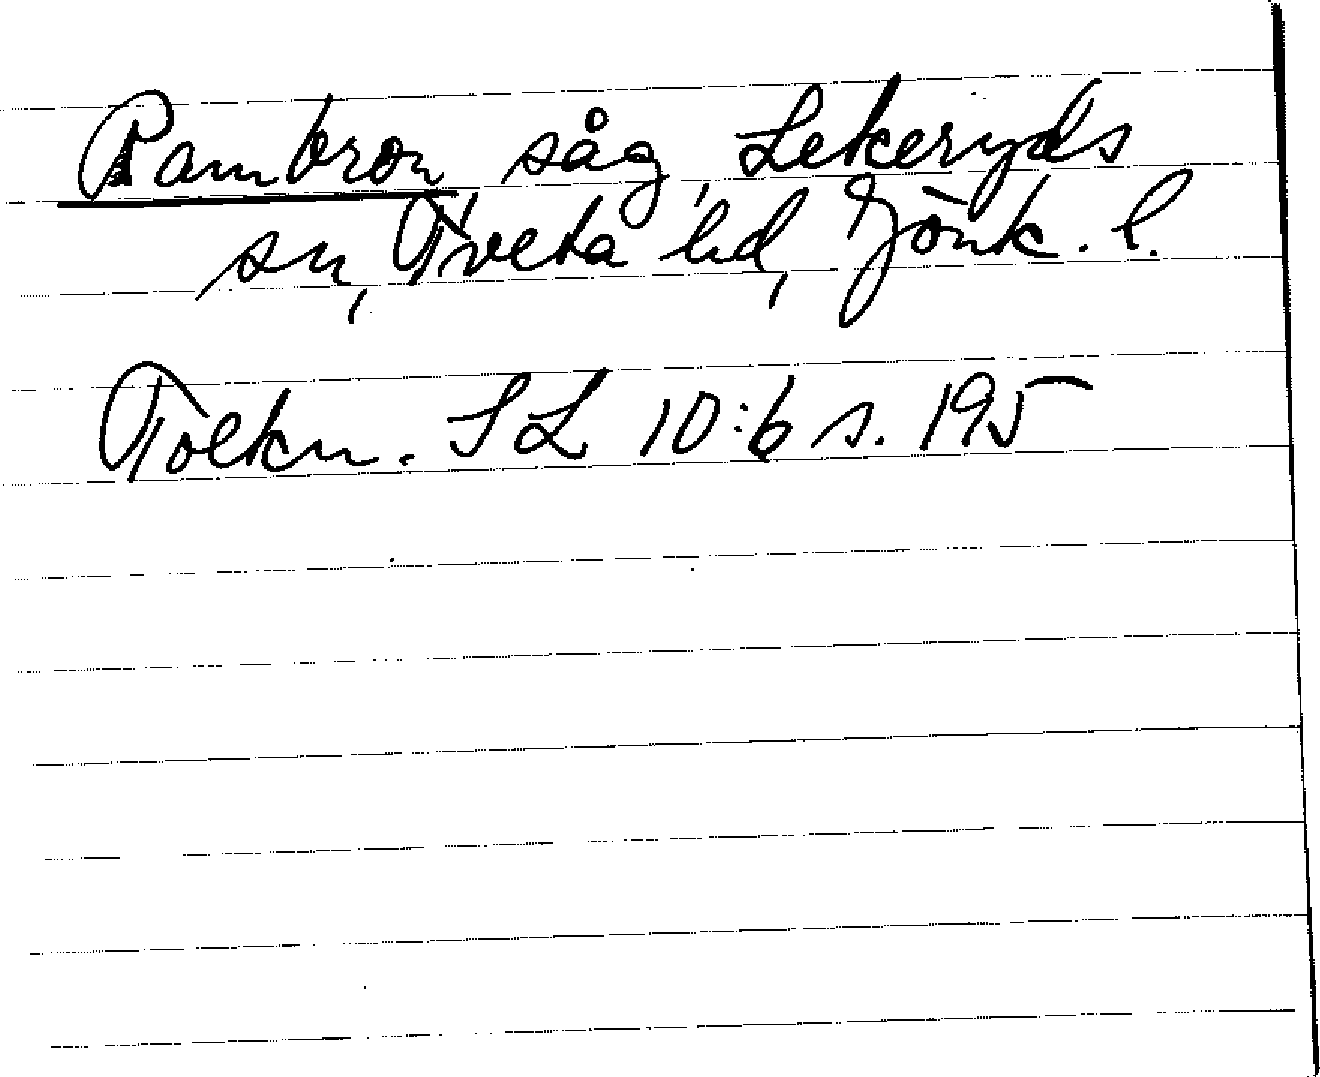 Rambron, såg, Lekeryds
sn, Tveta hd, Jönk. l.
Tolkn. SL 10:6 s. 195